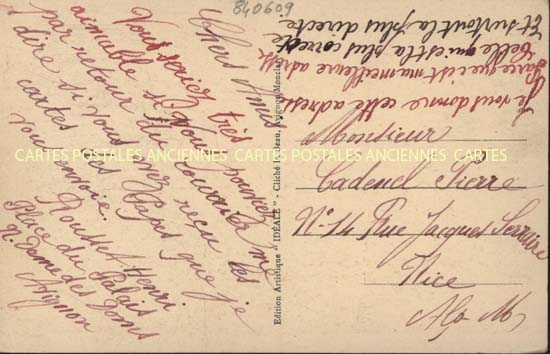 840609
Chers Amis
Vous seriez très
aimable si vous pouviez
par retour du courrier me
dire si vous avez reçu les
cartes des Papes que je
vous envoie.
Roustet Henri
Place du Palais
N. Dame des Doms
Avignon
Edition Artistique "IDÉALE" - Cliché Avignon
Je vous donne cette adresse
Parce que c'est ma meilleure adresse
Celle qui est la plus correcte
Et surtout la plus directe
Monsieur
CARTES POSTALES ANCIENNES CARTES POSTALES ANCIENNES CARTES
Cadenel Pierre
N° 14 Rue Jacques
Nice
Alp. M.